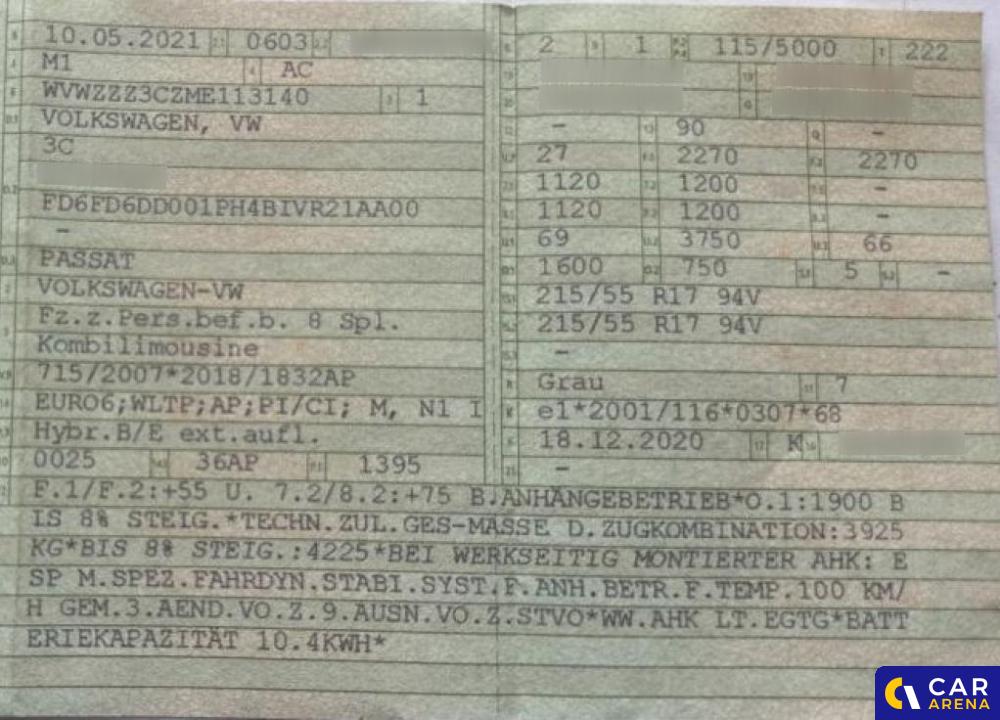 10.05.2021 0603
M1 AC
WVWZZZ3CZME113140 1
VOLKSWAGEN, VW
3C
FD6FD6DD001PH4BIVR21AA00
-
PASSAT
VOLKSWAGEN-VW
Fz.z.Pers.bef.b. 8 Spl.
Kombilimousine
715/2007*2018/1832AP
EURO6;WLTP;AP;PI/CI; M, N1 I
Hybr.B/E ext.aufl.
0025 36AP 1395
2 1 115/5000 222
- 90 -
27 2270 2270
1120 1200 -
1120 1200 -
69 3750 66
1600 750 5 -
215/55 R17 94V
215/55 R17 94V
-
Grau 7
e1*2001/116*0307*68
18.12.2020 K
-
F.1/F.2:+55 U. 7.2/8.2:+75 B.ANHÄNGEBETRIEB*O.1:1900 B
IS 8% STEIG.*TECHN.ZUL.GES-MASSE D.ZUGKOMBINATION:3925
KG*BIS 8% STEIG.:4225*BEI WERKSEITIG MONTIERTER AHK: E
SP M.SPEZ.FAHRDYN.STABI.SYST.F.ANH.BETR.F.TEMP.100 KM/
H GEM.3.AEND.VO.Z.9.AUSN.VO.Z.STVO*WW.AHK LT.EGTG*BATT
ERIEKAPAZITÄT 10.4KWH*
CAR
ARENA